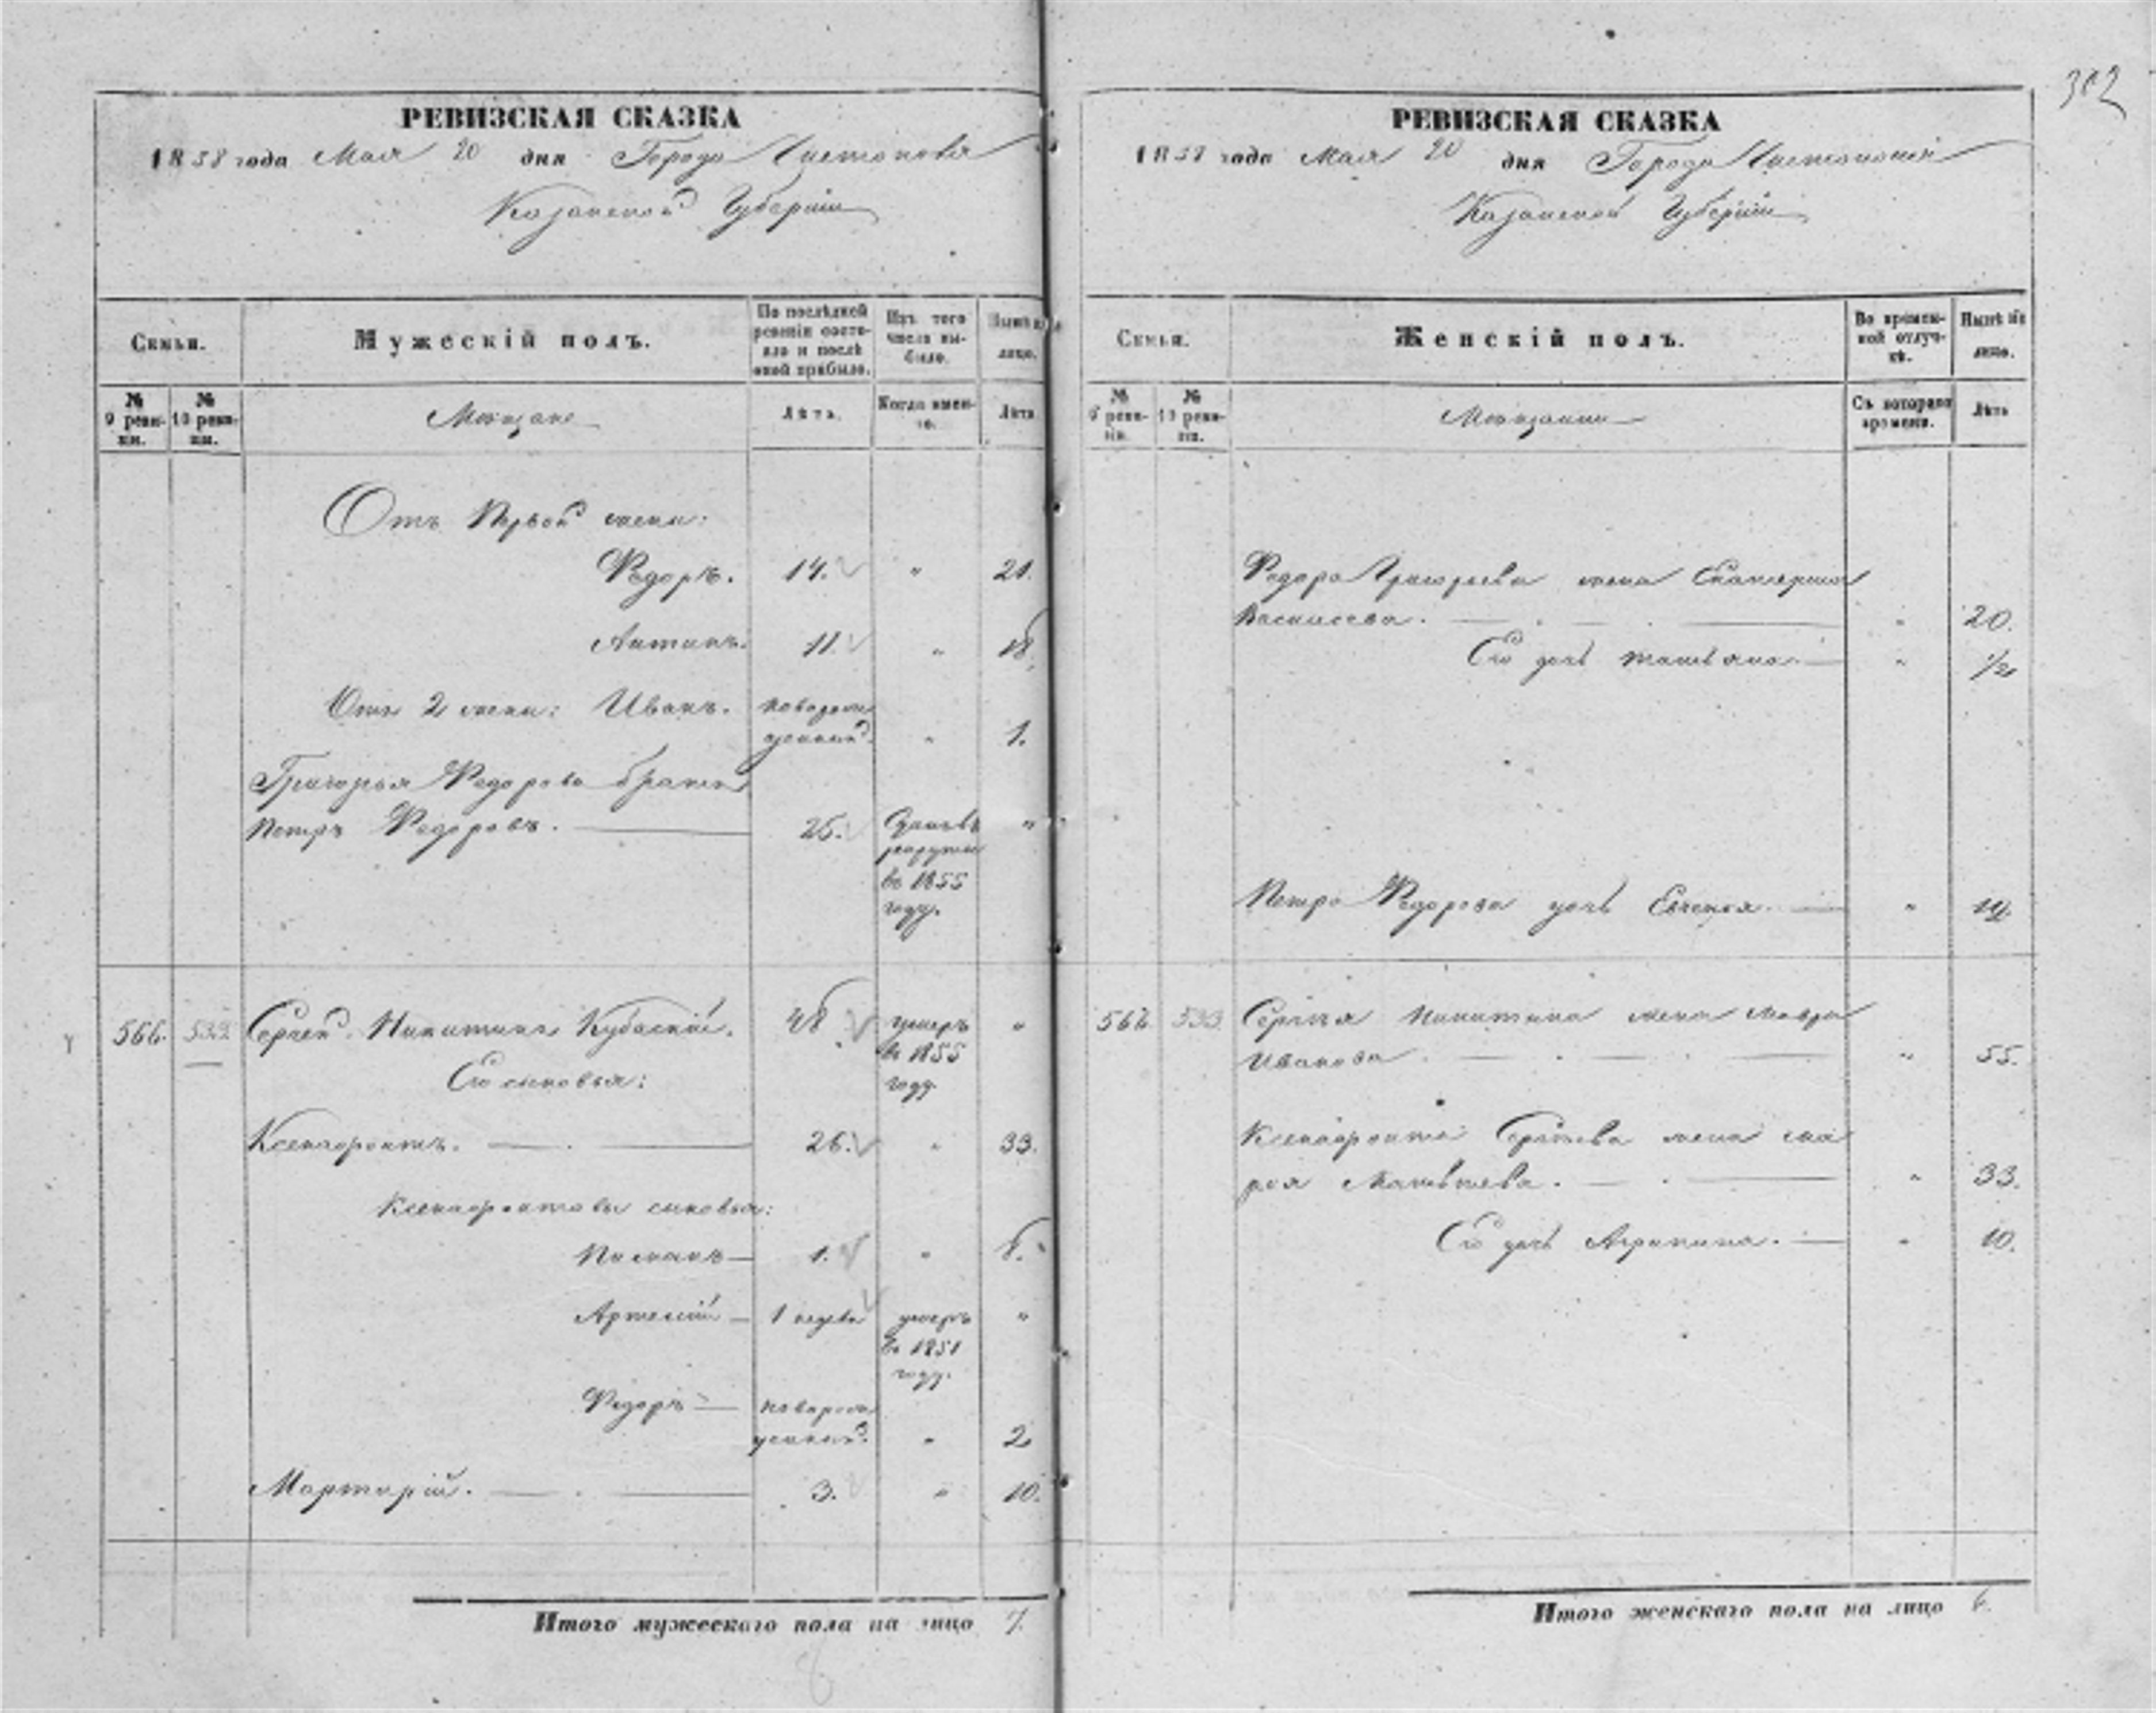 302
РЕВИЗСКАЯ СКАЗКА
1858 года Мая 20 дня Города Чистополя
Казанской Губерніи
Семьи.
Мужескій полъ.
По послѣдней ревизіи состояло и послѣ оной прибыло.
Изъ того числа выбыло.
Нынѣ на лицо.
№ 9 ревизіи.
№ 10 ревизіи.
Мѣщане
Лѣта.
Когда именно.
Лѣта
Отъ Первой жены:
Федоръ. 14. " 21.
Антипъ. 11. " 18.
Отъ 2 жены: Иванъ. новорож
денный. " 1.
Григорья Федорова братъ
Петръ Федоровъ. 25. "
въ 1855
году.
566. 533 Сергей Никитинъ Кубаскій. 48 умеръ "
въ 1855
году.
Его сыновья:
Ксенофонтъ. 26. " 33.
Ксенофонтовы сыновья:
1. " 8.
Артемій 1 недѣли умеръ "
въ 1851
году.
Федоръ новорож
денный. " 2
Мартирій. 3. " 10.
Итого мужескаго пола на лицо 7.
8
РЕВИЗСКАЯ СКАЗКА
1858 года Мая 20 дня Города Чистополя
Казанской Губерніи
Семья.
Женскій полъ.
Во временной отлучкѣ.
Нынѣ на лицо.
№ 9 ревизіи.
№ 10 ревизіи.
Мѣщанки
Съ котораго времени.
Лѣта
Федора Григорьева жена Екатерина
Васильева. " 20.
Его дочь Татьяна. " 1/2
Петра Федорова дочь Евгенія. "
566 533 Сергѣя Никитина жена Мавра
Иванова. " 55.
Ксенофонта Сергѣева жена Ма
рья Матвѣева. " 33.
Его дочь Агрипина. " 10.
Итого женскаго пола на лицо 6.